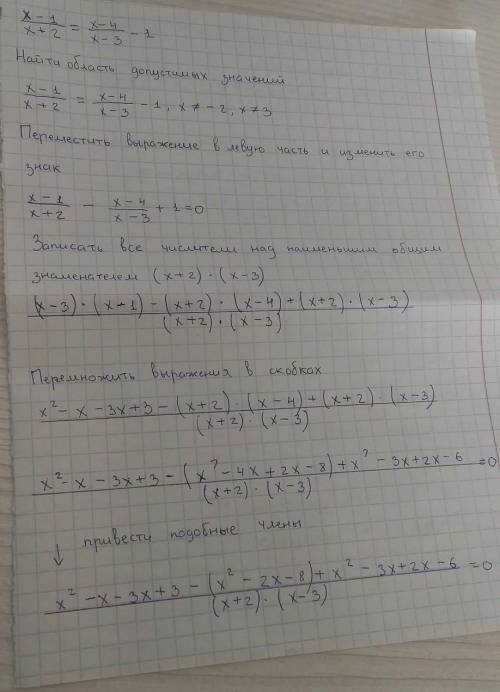 x-1/x+2 = x-4/x-3 - 1
Найти область допустимых значений
x-1/x+2 = x-4/x-3 - 1, x ≠ -2, x ≠ 3
Переместить выражение в левую часть и изменить его
знак
x-1/x+2 - x-4/x-3 + 1 = 0
Записать все числители над наименьшим общим
знаменателем (x+2)·(x-3)
(x-3)·(x-1)-(x+2)·(x-4)+(x+2)·(x-3)
(x+2)·(x-3)
Перемножить выражения в скобках
x²-x-3x+3-(x+2)·(x-4)+(x+2)·(x-3)
(x+2)·(x-3)
x²-x-3x+3-(x²-4x+2x-8)+x²-3x+2x-6 =0
(x+2)·(x-3)
↓ привести подобные члены
x²-x-3x+3-(x²-2x-8)+x²-3x+2x-6 =0
(x+2)·(x-3)